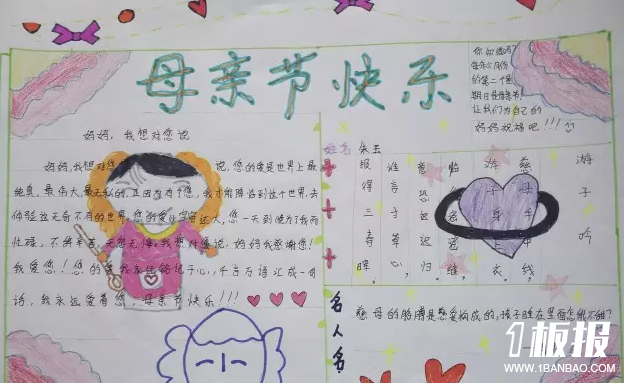 母亲节快乐
你知道吗?
每年5月份
的第二个星
期日是母亲节!
让我们为自己的
妈妈祝福吧!!!
妈妈,我想对您说
妈妈,我想对您说,您的爱是世界上最
纯真,最伟大,最无私的,正因为有了您,我才能降临到这个世界,去
体验这无奇不有的世界,您的爱比宇宙还大,您一天到晚为了我而
忙碌,不,无怨无悔。我想对您说,妈妈我感谢您!
我爱您!您的爱我永远铭记于心,千言万语汇成一句
话,我永远爱着您,母亲节快乐!!!
姓名
朱玉
游子吟
慈母手中线,
游子身上衣,
临行密密缝,
意恐迟迟归,
谁言寸草心,
报得三春晖。
名人名
慈母的胳膊是慈爱构成的,孩子睡在里面怎能不甜?
1板报
WWW.1BANBAO.COM